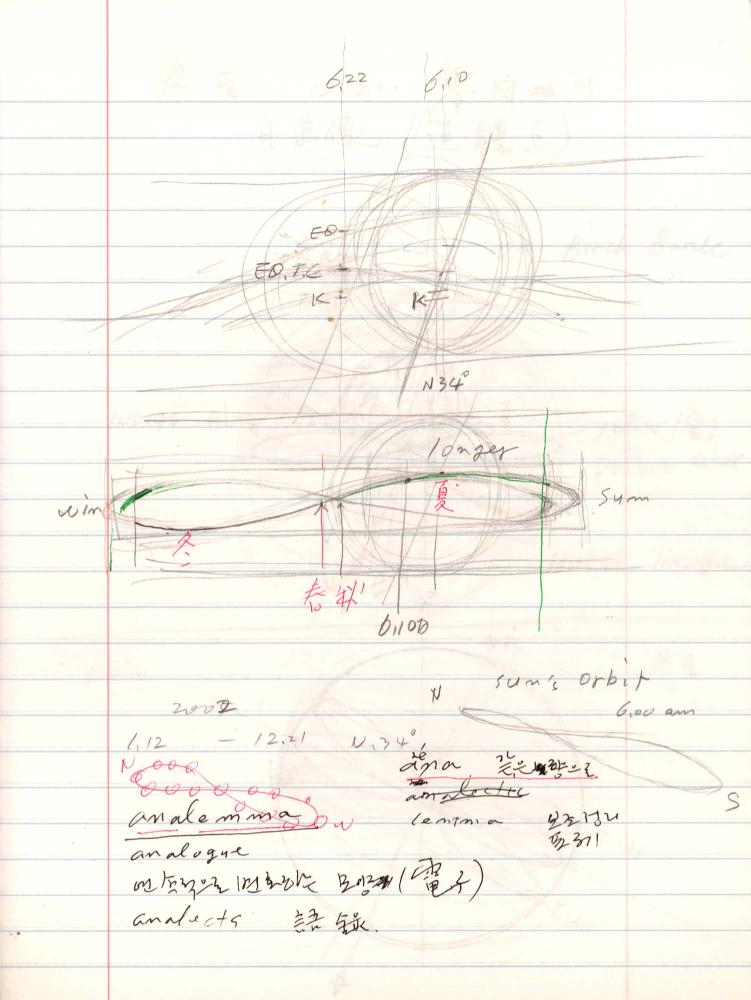 6,22 6,10
EQ
EQ,T,C
K K
N34°
longer
win 夏 sum
冬
春 秋
sun's orbit
N
6,00 am
1,12 — 12.21 N,34°
N
ana 같은
S
analemma
lemma 보조정리
analogue
연속적으로 변화하는 모양 (電子)
analects 語錄.